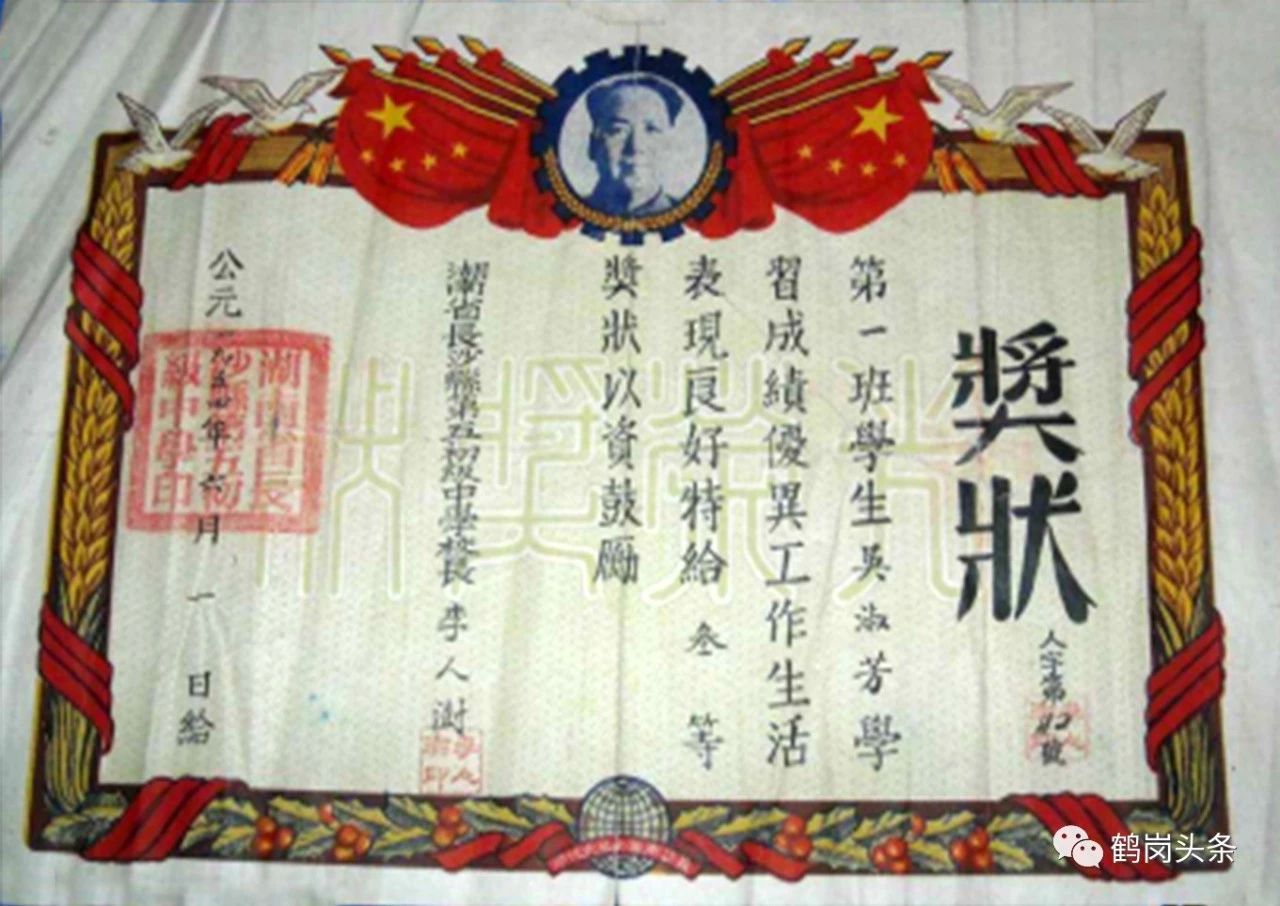 獎狀
人字第42號
第一班學生吳淑芳學
習成績優異工作生活
表現良好特給叁等
獎狀以資鼓勵
湖南省長沙縣第五初級中學校長李人澍
公元一九五四年六月一日給
湖南省長
沙縣第五初
級中學印
光榮獎狀
鹤岗头条